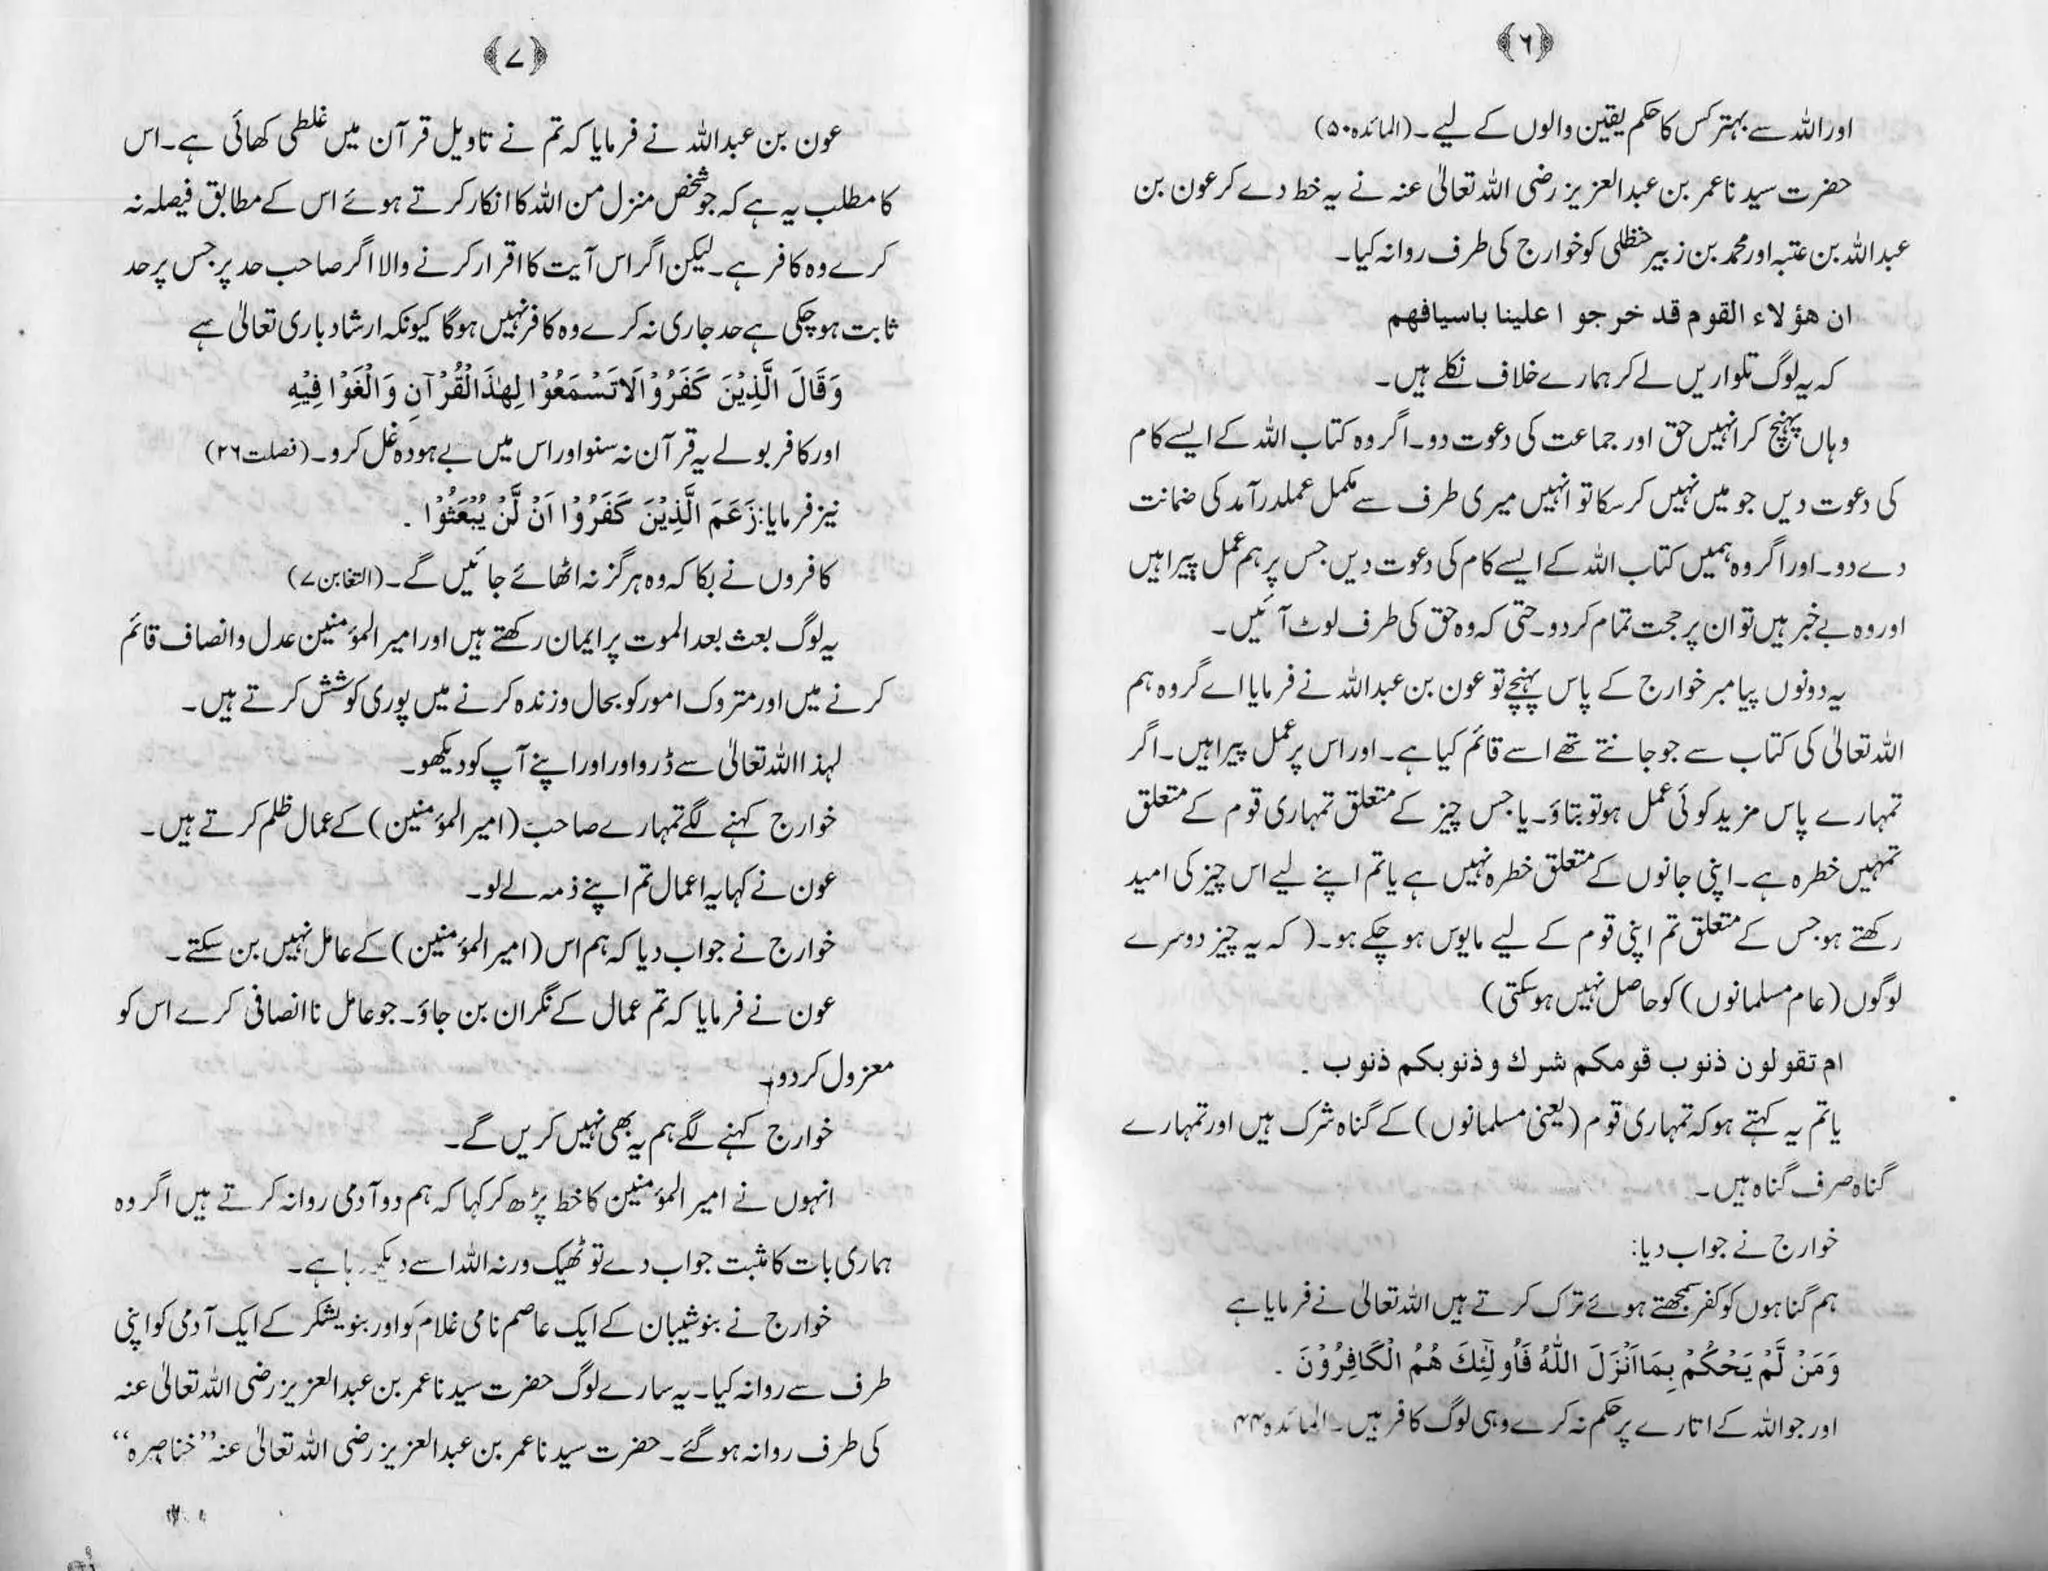 ﴿۶﴾
اور اللہ سے بہتر کس کا حکم یقین والوں کے لیے۔ (المائدہ ۵۰)
حضرت سیدنا عمر بن عبدالعزیز رضی اللہ تعالیٰ عنہ نے یہ خط دے کر عون بن
عبداللہ بن عتبہ اور محمد بن زبیر حنظلی کو خوارج کی طرف روانہ کیا۔
ان هؤلاء القوم قد خرجوا علينا باسيافهم
کہ یہ لوگ تلواریں لے کر ہمارے خلاف نکلے ہیں۔
وہاں پہنچ کر انہیں حق اور جماعت کی دعوت دو۔ اگر وہ کتاب اللہ کے ایسے کام
کی دعوت دیں جو میں نہیں کر سکا تو انہیں میری طرف سے مکمل عملدرآمد کی ضمانت
دے دو۔ اور اگر وہ ہمیں کتاب اللہ کے ایسے کام کی دعوت دیں جس پر ہم عمل پیرا ہیں
اور وہ بے خبر ہیں تو ان پر حجت تمام کر دو۔ حتی کہ وہ حق کی طرف لوٹ آئیں۔
یہ دونوں پیامبر خوارج کے پاس پہنچے تو عون بن عبداللہ نے فرمایا اے گروہ ہم
اللہ تعالیٰ کی کتاب سے جو جانتے تھے اسے قائم کیا ہے۔ اور اس پر عمل پیرا ہیں۔ اگر
تمہارے پاس مزید کوئی عمل ہو تو بتاؤ۔ یا جس چیز کے متعلق تمہاری قوم کے متعلق
تمہیں خطرہ ہے۔ اپنی جانوں کے متعلق خطرہ نہیں ہے یا تم اپنے لیے اس چیز کی امید
رکھتے ہو جس کے متعلق تم اپنی قوم کے لیے مایوس ہو چکے ہو۔ (کہ یہ چیز دوسرے
لوگوں (عام مسلمانوں) کو حاصل نہیں ہو سکتی)
ام تقولون ذنوب قومكم شرك وذنوبكم ذنوب ۔
یا تم یہ کہتے ہو کہ تمہاری قوم (یعنی مسلمانوں) کے گناہ شرک ہیں اور تمہارے
گناہ صرف گناہ ہیں۔
خوارج نے جواب دیا:
ہم گناہوں کو کفر سمجھتے ہوئے ترک کرتے ہیں اللہ تعالیٰ نے فرمایا ہے
وَمَنْ لَّمْ يَحْكُمْ بِمَا اَنْزَلَ اللّٰهُ فَاُولٰٓئِكَ هُمُ الْكَافِرُوْنَ ۔
اور جو اللہ کے اتارے پر حکم نہ کرے وہی لوگ کافر ہیں۔ المائدہ ۴۴
﴿۷﴾
عون بن عبداللہ نے فرمایا کہ تم نے تاویل قرآن میں غلطی کھائی ہے۔ اس
کا مطلب یہ ہے کہ جو شخص منزل من اللہ کا انکار کرتے ہوئے اس کے مطابق فیصلہ نہ
کرے وہ کافر ہے۔ لیکن اگر اس آیت کا اقرار کرنے والا اگر صاحب حد پر جس پر حد
ثابت ہو چکی ہے حد جاری نہ کرے وہ کافر نہیں ہوگا کیونکہ ارشاد باری تعالیٰ ہے
وَقَالَ الَّذِيْنَ كَفَرُوْا لَا تَسْمَعُوْا لِهٰذَا الْقُرْآنِ وَالْغَوْا فِيْهِ
اور کافر بولے یہ قرآن نہ سنو اور اس میں بے ہودہ غل کرو۔ (فصلت ۲۶)
نیز فرمایا: زَعَمَ الَّذِيْنَ كَفَرُوْا اَنْ لَّنْ يُبْعَثُوْا ۔
کافروں نے بکا کہ وہ ہرگز نہ اٹھائے جائیں گے۔ (التغابن ۷)
یہ لوگ بعث بعد الموت پر ایمان رکھتے ہیں اور امیر المؤمنین عدل و انصاف قائم
کرنے میں اور متروک امور کو بحال و زندہ کرنے میں پوری کوشش کرتے ہیں۔
لہذا اللہ تعالیٰ سے ڈرو اور اور اپنے آپ کو دیکھو۔
خوارج کہنے لگے تمہارے صاحب (امیر المؤمنین) کے عمال ظلم کرتے ہیں۔
عون نے کہا یہ اعمال تم اپنے ذمہ لے لو۔
خوارج نے جواب دیا کہ ہم اس (امیر المؤمنین) کے عامل نہیں بن سکتے۔
عون نے فرمایا کہ تم عمال کے نگران بن جاؤ۔ جو عامل ناانصافی کرے اس کو
معزول کر دو۔
خوارج کہنے لگے ہم یہ بھی نہیں کریں گے۔
انہوں نے امیر المؤمنین کا خط پڑھ کر کہا کہ ہم دو آدمی روانہ کرتے ہیں اگر وہ
ہماری بات کا مثبت جواب دے تو ٹھیک ورنہ اللہ اسے دیکھ رہا ہے۔
خوارج نے بنو شیبان کے ایک عاصم نامی غلام کو اور بنو یشکر کے ایک آدمی کو اپنی
طرف سے روانہ کیا۔ یہ سارے لوگ حضرت سیدنا عمر بن عبدالعزیز رضی اللہ تعالیٰ عنہ
کی طرف روانہ ہو گئے۔ حضرت سیدنا عمر بن عبدالعزیز رضی اللہ تعالیٰ عنہ ”خناصرہ“